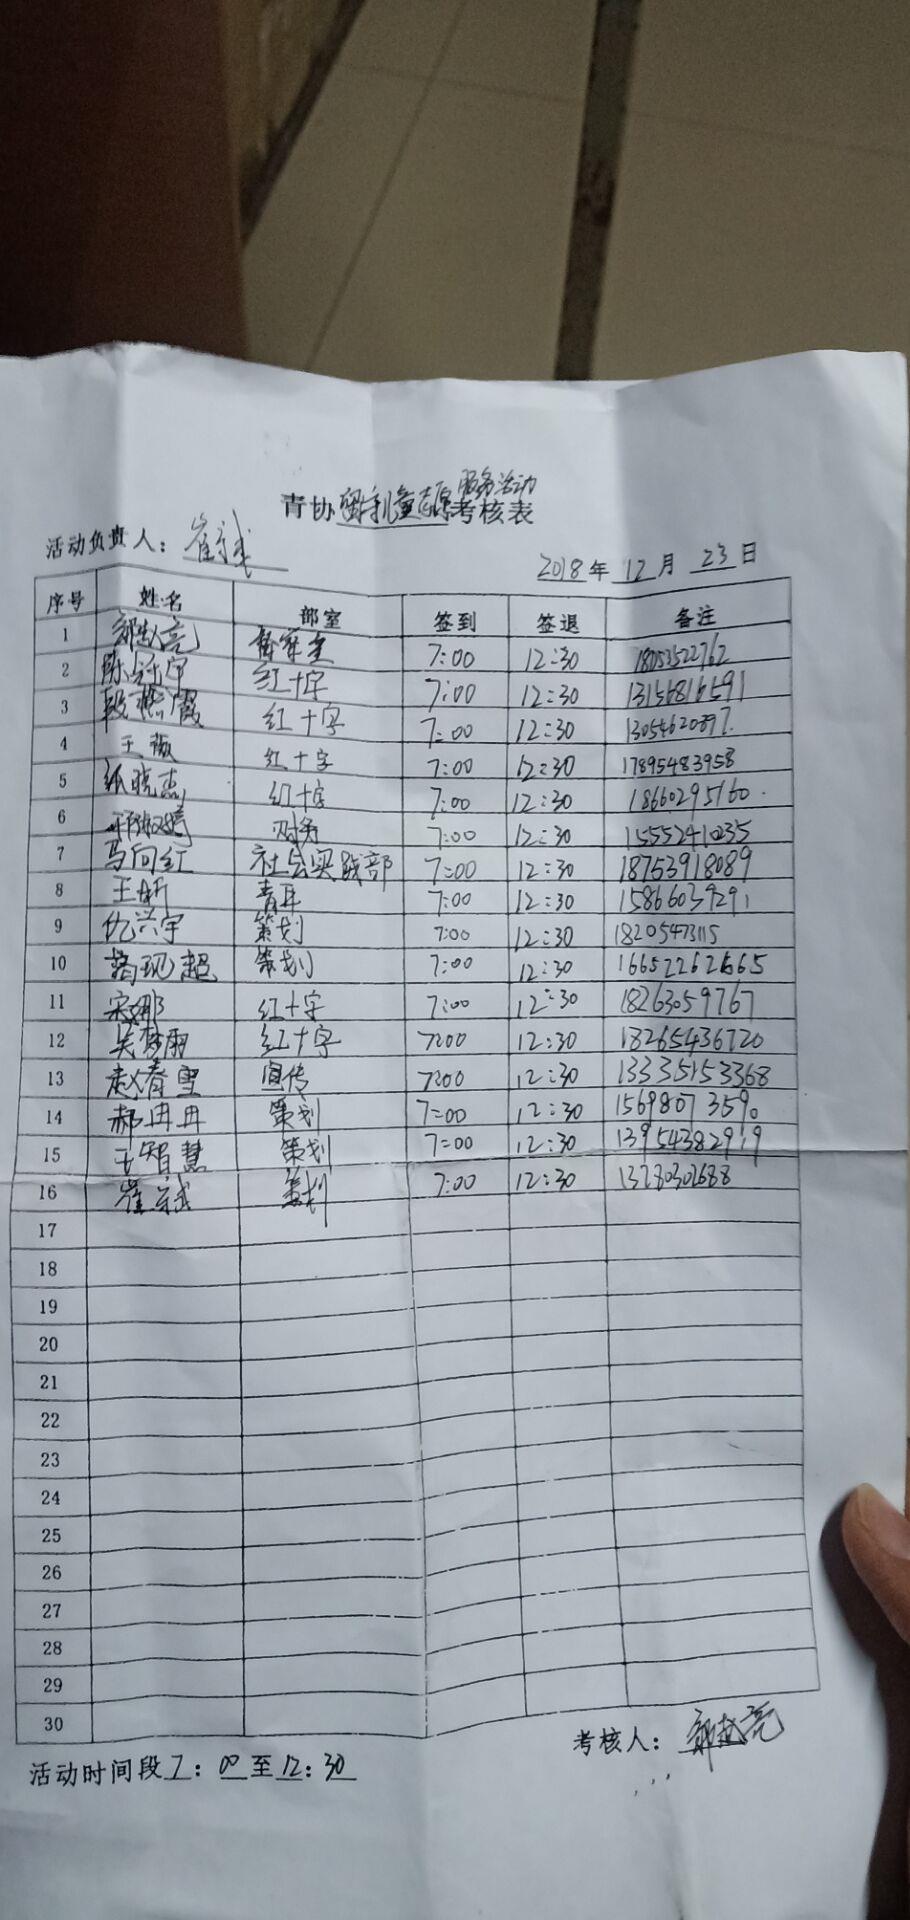 服务活动
青协 留守儿童志愿 考核表
活动负责人：崔斌
2018年 12月 23日
序号 姓名 部室 签到 签退 备注
1 7:00 12:30 18053522762
2 陈冠宇 红十字 7:00 12:30 13156816591
3 段燕霞 红十字 7:00 12:30 13054620897
4 王薇 红十字 7:00 12:30 17895483958
5 晓杰 红十字 7:00 12:30 18660295160
6 财务 7:00 12:30 15552410235
7 马向红 社会实践部 7:00 12:30 18753918089
8 王昕 7:00 12:30 15866039291
9 仇兴宇 策划 7:00 12:30 18205473115
10 现超 策划 7:00 12:30 166522626665
11 宋娜 红十字 7:00 12:30 18263059767
12 吴梦雨 红十字 7:00 12:30 18265436720
13 赵春雪 宣传 7:00 12:30 13335153368
14 郝冉冉 策划 7:00 12:30 15698073590
15 王智慧 策划 7:00 12:30 13954382919
16 崔斌 策划 7:00 12:30 13280302688
17
18
19
20
21
22
23
24
25
26
27
28
29
30
考核人：
活动时间段 7：00 至 12：30